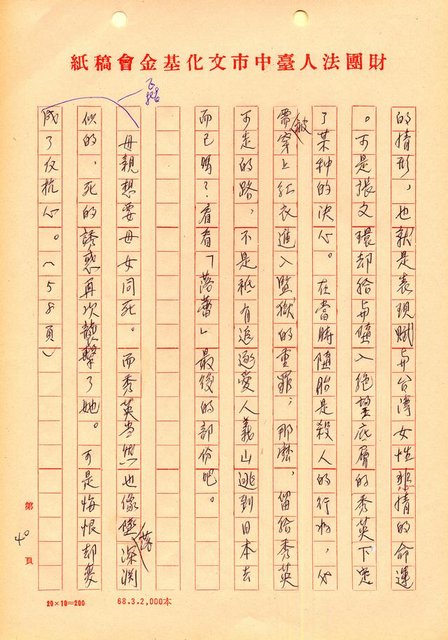 財團法人臺中市文化基金會稿紙
的情形，也就是表現賦與台灣女性悲情的命運
。可是張文環却給與墮入絕望底層的秀英下定
了某种的決心。在當時墮胎是殺人的行為，必
需穿上紅衣進入監獄的重罪，那麼，留給秀英
被
可走的路，不是祇有追邀愛人義山逃到日本去
而已嗎？看看「落蕾」最後的部份吧。
母親想要母女同死。而秀英当然也像墮深淵
落
似的，死的誘惑再次襲擊了她。可是悔恨却变
成了反抗心。（58頁）
第 40 頁
20×10=200
68.3.2,000本